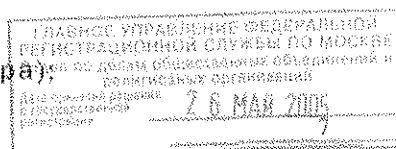 ГЛАВНОЕ УПРАВЛЕНИЕ ФЕДЕРАЛЬНОЙ
РЕГИСТРАЦИОННОЙ СЛУЖБЫ ПО МОСКВЕ
ра);
по делам общественных объединений и
религиозных организаций
Дата принятия решения
о государственной
регистрации
2 6 МАЙ 2005